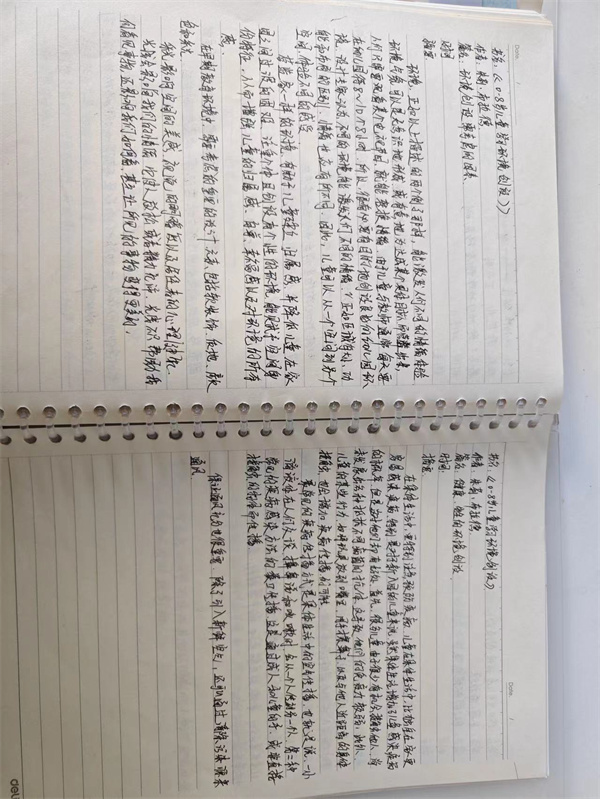 Date. /
书名:《0-8岁儿童学习环境创设》
作者:朱莉·布拉德
篇名:环境创设要考虑的因素
时间
摘要
环境,正如以上描述的两个例子那样,能激发人们不同的情绪体验
环境气氛可以是无意识地形成,或有意地为达成某个具体目的而营造出来,
人们只需要观看某个电视节目,就能变换情绪。由于儿童与教师通常每天要
在幼儿园待8~10个多小时,所以,很有必要有目的地创设良好的幼儿园环
境。设计专家认为,不同的环境能激发人们不同的情绪。正如区域有别,功
能和布局的区别,情绪也应有所不同。因此,儿童可以从一个空间到另个
空间,体验不同的感受
营造家一样的环境,有助于儿童建立归属感,并降低儿童在家
园之间过渡的困难。注重个体且创设有个性的环境,能赋予空间身
份特征,从而增强儿童的归属感、自尊、幸福感以及对环境的所有
感
在早期教育环境中,需要考虑的重要的设计元素,包括软装饰、质地、颜
色和采光
采光影响空间的美感、视觉的明暗度以及居住者的心理健康。
光线会影响我们的情绪,它使人放松或者精力充沛。光线不只帮助我
们看见事物,还影响我们如何看,甚至让所见的事物变得更美好。
Date. /
书名:《0-8岁儿童学习环境创设》
作者:朱莉·布拉德
篇名:健康、的环境创设
时间:
摘要
在集体生活中,要特别注意预防疾病。儿童在集体生活中,比独自在家更
容易感染疾病,特别是对于新入园的儿童来说。虽然集体生活增加了儿童感染疾病
的概率,但是这对他们却有好处。首先,很多儿童由于很少有机会接触他人,
没有发展出各种抵抗不同病菌的抗体,这导致他们的免疫力较弱。此外,
儿童的某些行为,如将玩具放到嘴里、用手揉鼻子,以及与他人近距离的身体
接触,也会增加疾病传播的可能
最常见的疾病传播方式是集体生活中的空气传播,也就是说,一小
滴液体在人们交谈、打喷嚏和咳嗽时,会从一个人传到另一个人。另一种
常见的疾病感染方法的接触传播,这是通过成人和儿童的手,或者直接
接触的物体而传播
保证通风充分也很重要,除了引入新鲜空气,还可以通过清除污染源来
通风
deli